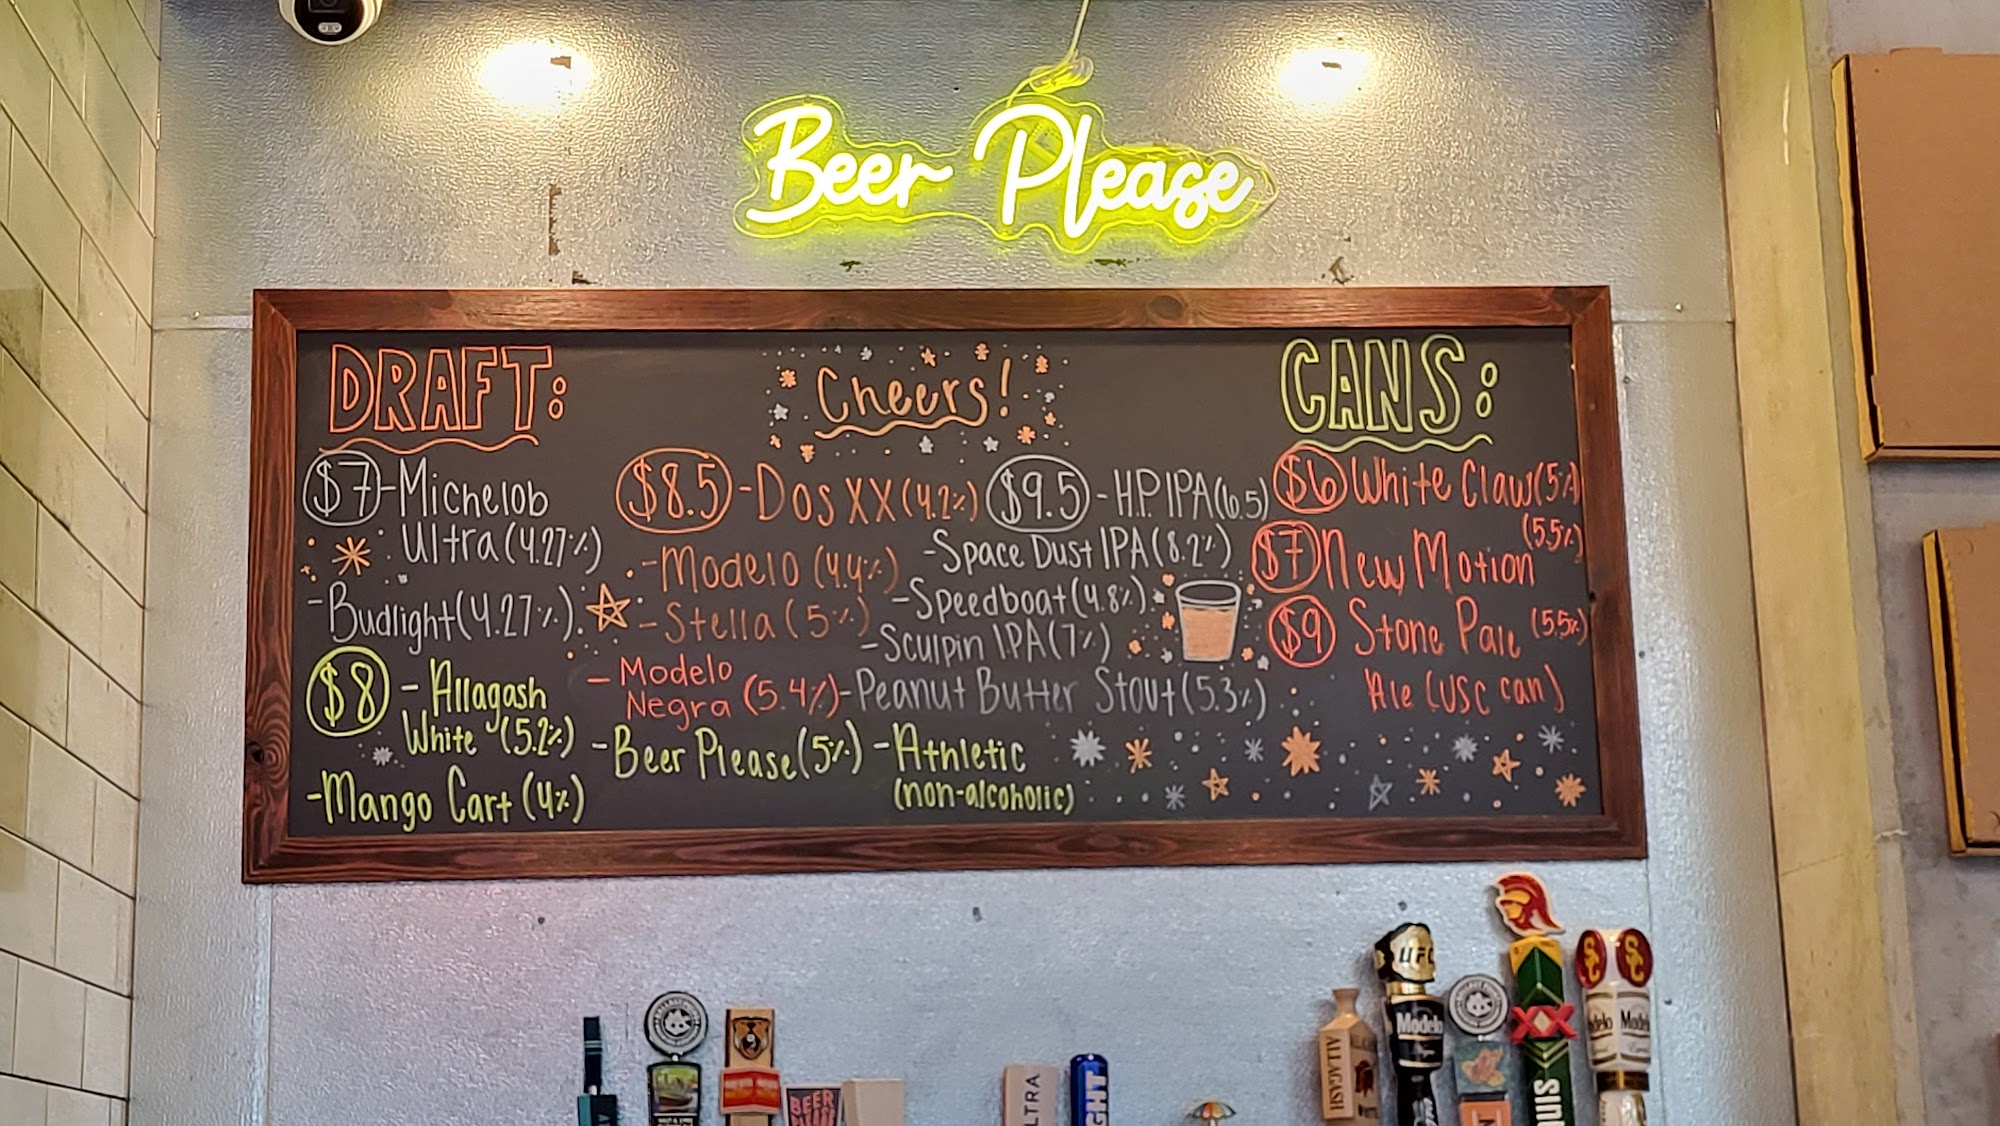 Beer Please
DRAFT:
Cheers!
CANS:
$7-Michelob
Ultra (4.27%)
-Budlight (4.27%)
$8 - Allagash
White (5.2%)
-Mango Cart (4%)
-Beer Please (5%)
-Athletic
(non-alcoholic)
$8.5 -Dos XX (4.2%)
-Modelo (4.4%)
-Stella (5%)
-Modelo
Negra (5.4%)
$9.5 -H.P. IPA (6.5)
-Space Dust IPA (8.2%)
-Speedboat (4.8%)
-Sculpin IPA (7%)
-Peanut Butter Stout (5.3%)
$6 White Claw (5%)
$7 New Motion (5.5%)
$9 Stone Pale (5.5%)
Ale (USC can)
BEER
LTRA
GHT
ALLAGASH
UFC
Modelo
XX
SC
SC